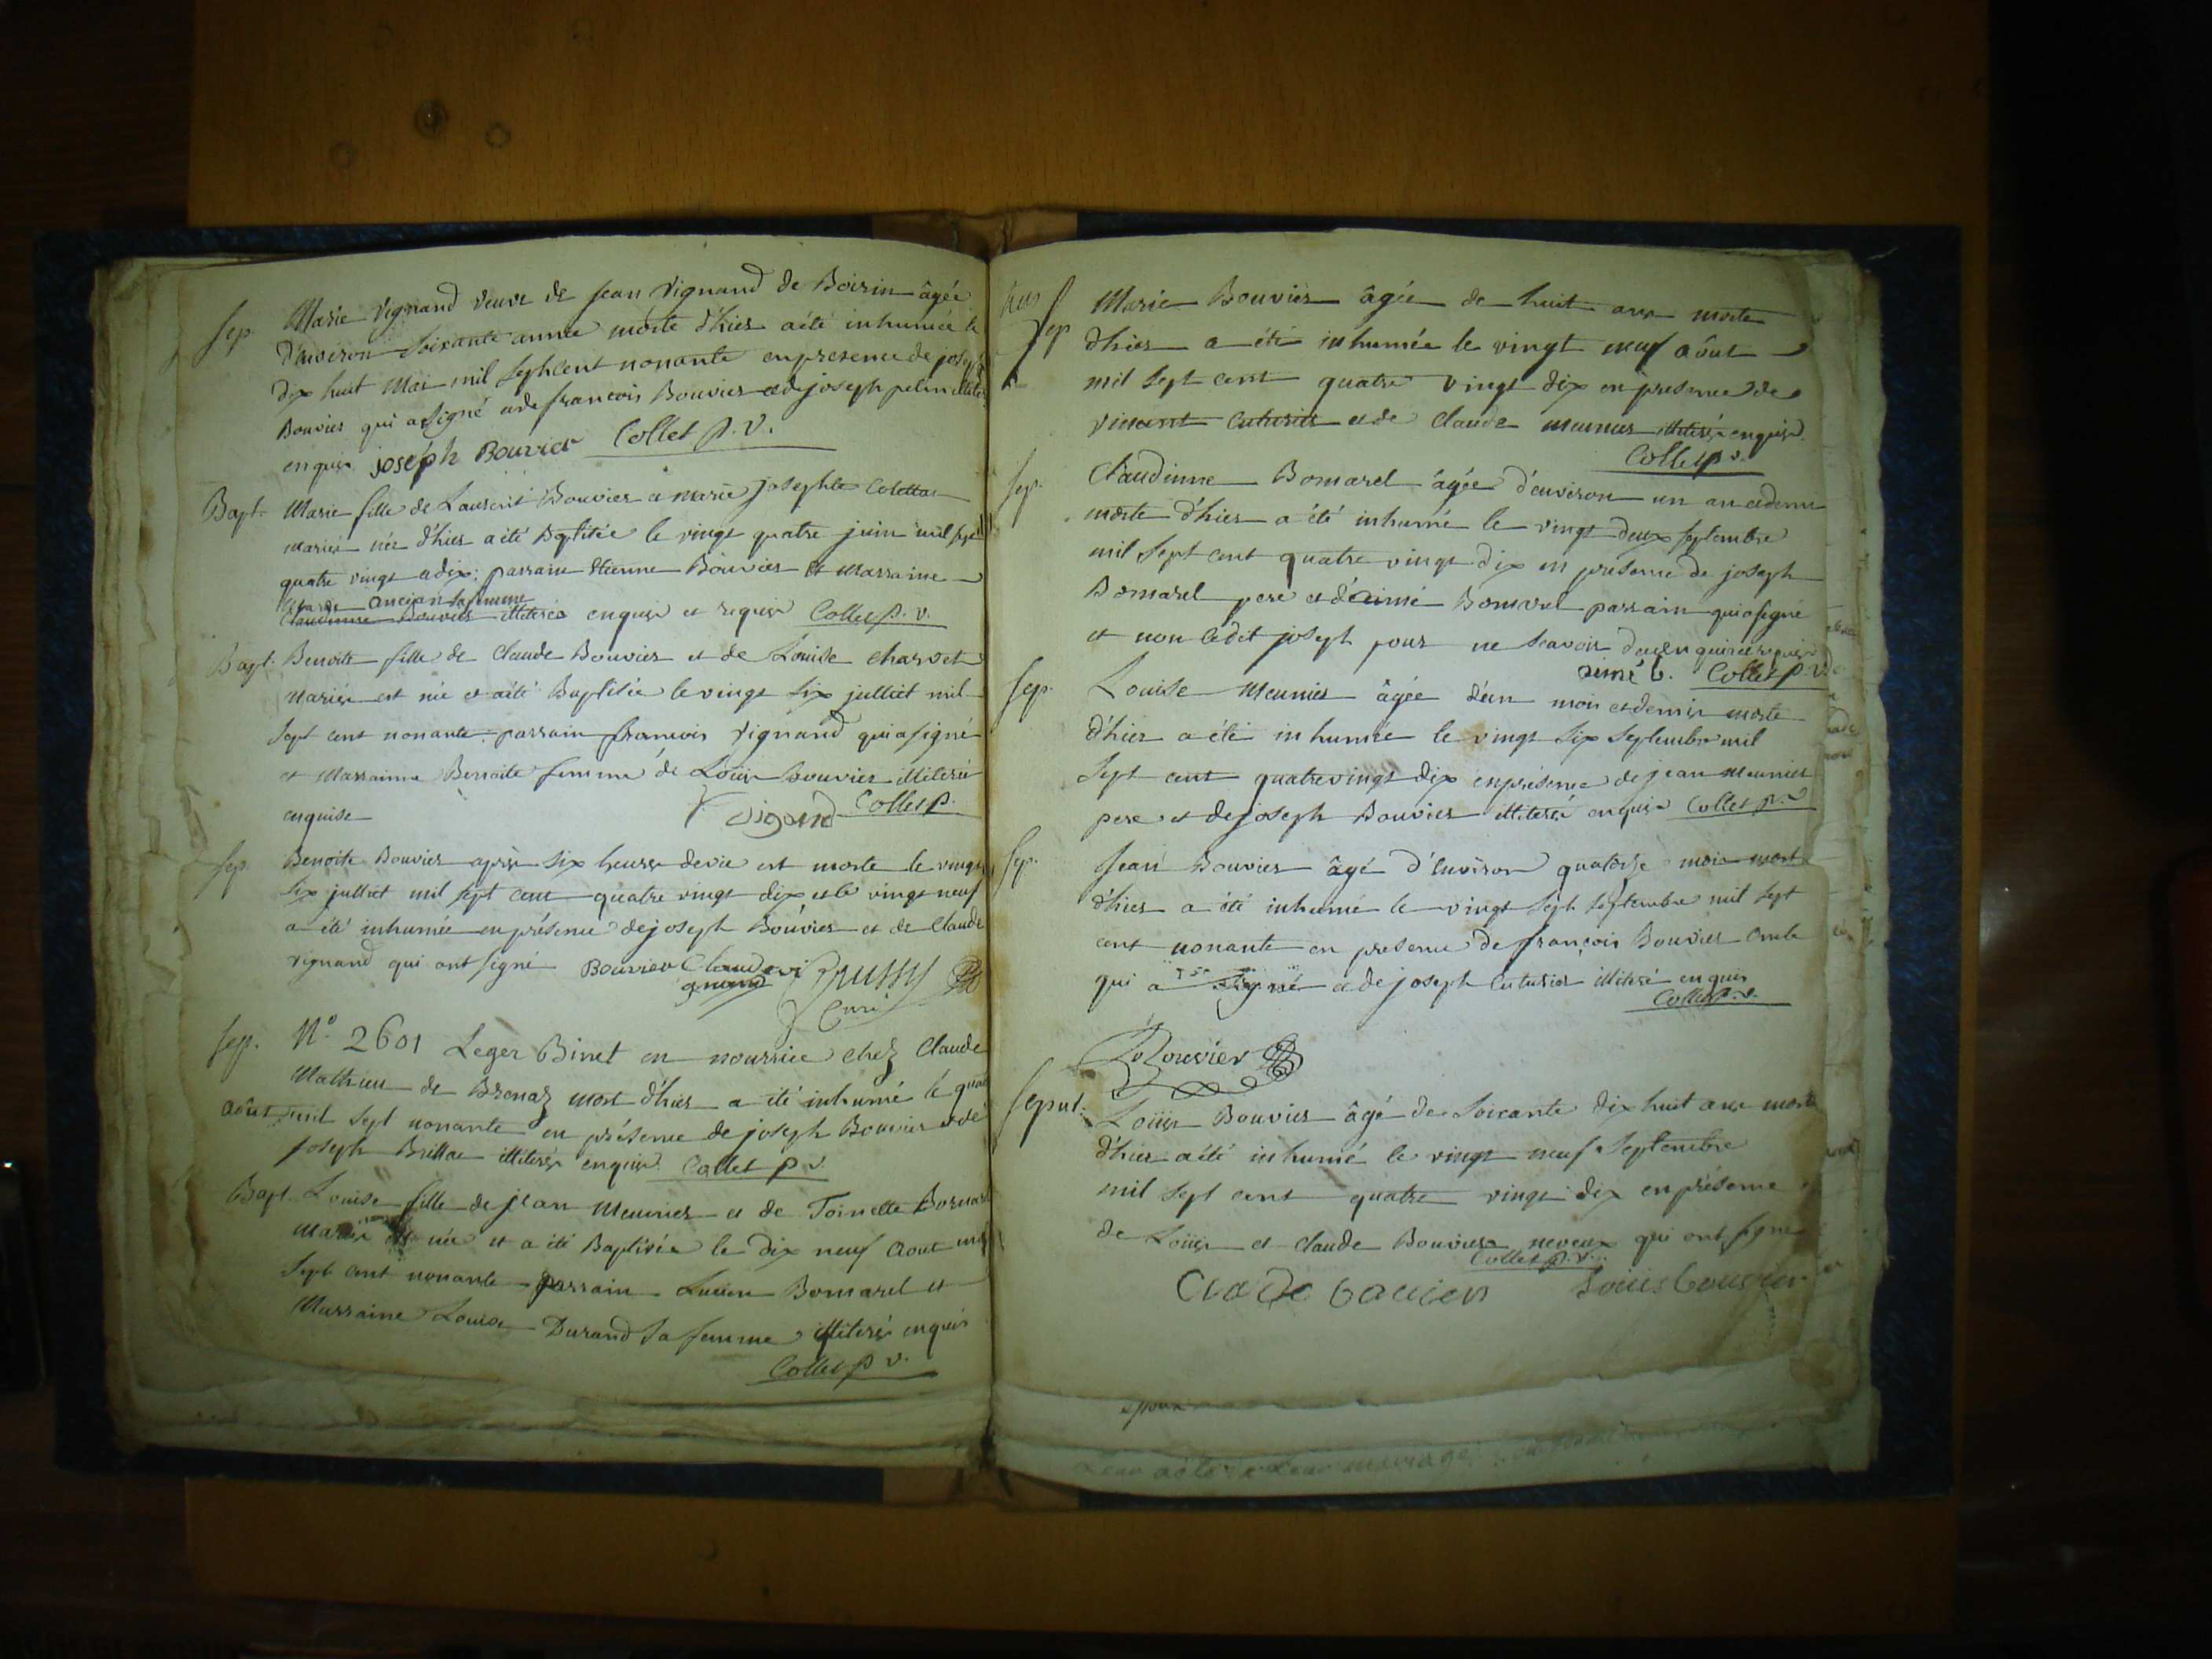 Sep. Marie Vignand veuve de Jean Vignand de Boirin âgée
d'environ soixante année morte d'hier a été inhumée le
dix huit Mai mil sept cent nonante en presence de joseph
Bouvier qui a signé et de francois Bouvier et de joseph pelin
enquis joseph Bouvier Collet p. v.
Bapt. Marie fille de Laurent Bouvier et marie josephte
mariés née d'hier a été Baptisée le vingt quatre juin mil sept
quatre vingt et dix: parrain Etienne Bouvier et marraine
ancian sa femme
Claudinne Bouvier illiterés enquis et requis Collet p. v.
Bapt. Benoite fille de Claude Bouvier et de Louise charvet
mariés est née et a été Baptisée le vingt six julliet mil
sept cent nonante. parrain francois Vignand qui a signé
et marraine Benoite femme de Loüis bouvier illiterée
enquise Vigand Collet p.
Sep. Benoite Bouvier après six heures de vie est morte le vingt
six julliet mil sept cent quatre vingt dix et le vingt neuf
a été inhumée en présence de joseph Bouvier et de Claude
vignand qui ont signé Bouvier Claude vi
gnand curé
Sep. N.º 2601 Leger Binet en nourrice chez Claude
Mathieu de Brenaz mort d'hier a été inhumé le
août mil sept nonante en présence de joseph Bouvier et de
joseph Brillat illiterés enquis Collet p v.
Bapt. Louise fille de jean Meunier et de Toinette
mariés est née et a été Baptisée le dix neuf Aout mil
sept cent nonante parrain Lucien Bomarel et
Marraine Louise Durand sa femme illiterés enquis
Collet p v.
Sep Marie Bouvier âgée de huit ans morte
d'hier a été inhumée le vingt neuf aôut
mil sept cent quatre vingt dix en presence de
vincent Cuturier et de Claude meunier illiterés enquis
Collet p v.
Sep. Claudinne Bomarel âgée d'environ un an et demi
morte d'hier a été inhumé le vingt deux septembre
mil sept cent quatre vingt dix en présence de joseph
Bomarel pere et d'aimé Bomarel parrain qui a signé
et non ledit joseph pour ne scavoir de ce enquis et requis
aimé b. Collet p. v.
Sep. Louise Meunier âgée d'un mois et demis morte
d'hier a été inhumée le vingt six septembre mil
sept cent quatre vingt dix en présence de jean meunier
pere et de joseph Bouvier illiterés enquis Collet p. v
Sep. Jean Bouvier âgé d'environ quatorse mois mort
d'hier a été inhumé le vingt sept septembre mil sept
cent nonante en presence de françois Bouvier oncle
qui a signé et de joseph Cuturier illiteré enquis
Collet p. v.
Bouvier
Sepul. Loüis Bouvier âgé de soixante dix huit ans mort
d'hier a été inhumé le vingt neuf Septembre
mil sept cent quatre vingt dix en présence
de Loüis et claude Bouvier neveux qui ont signé
Collet p. v.
Louis bouvier